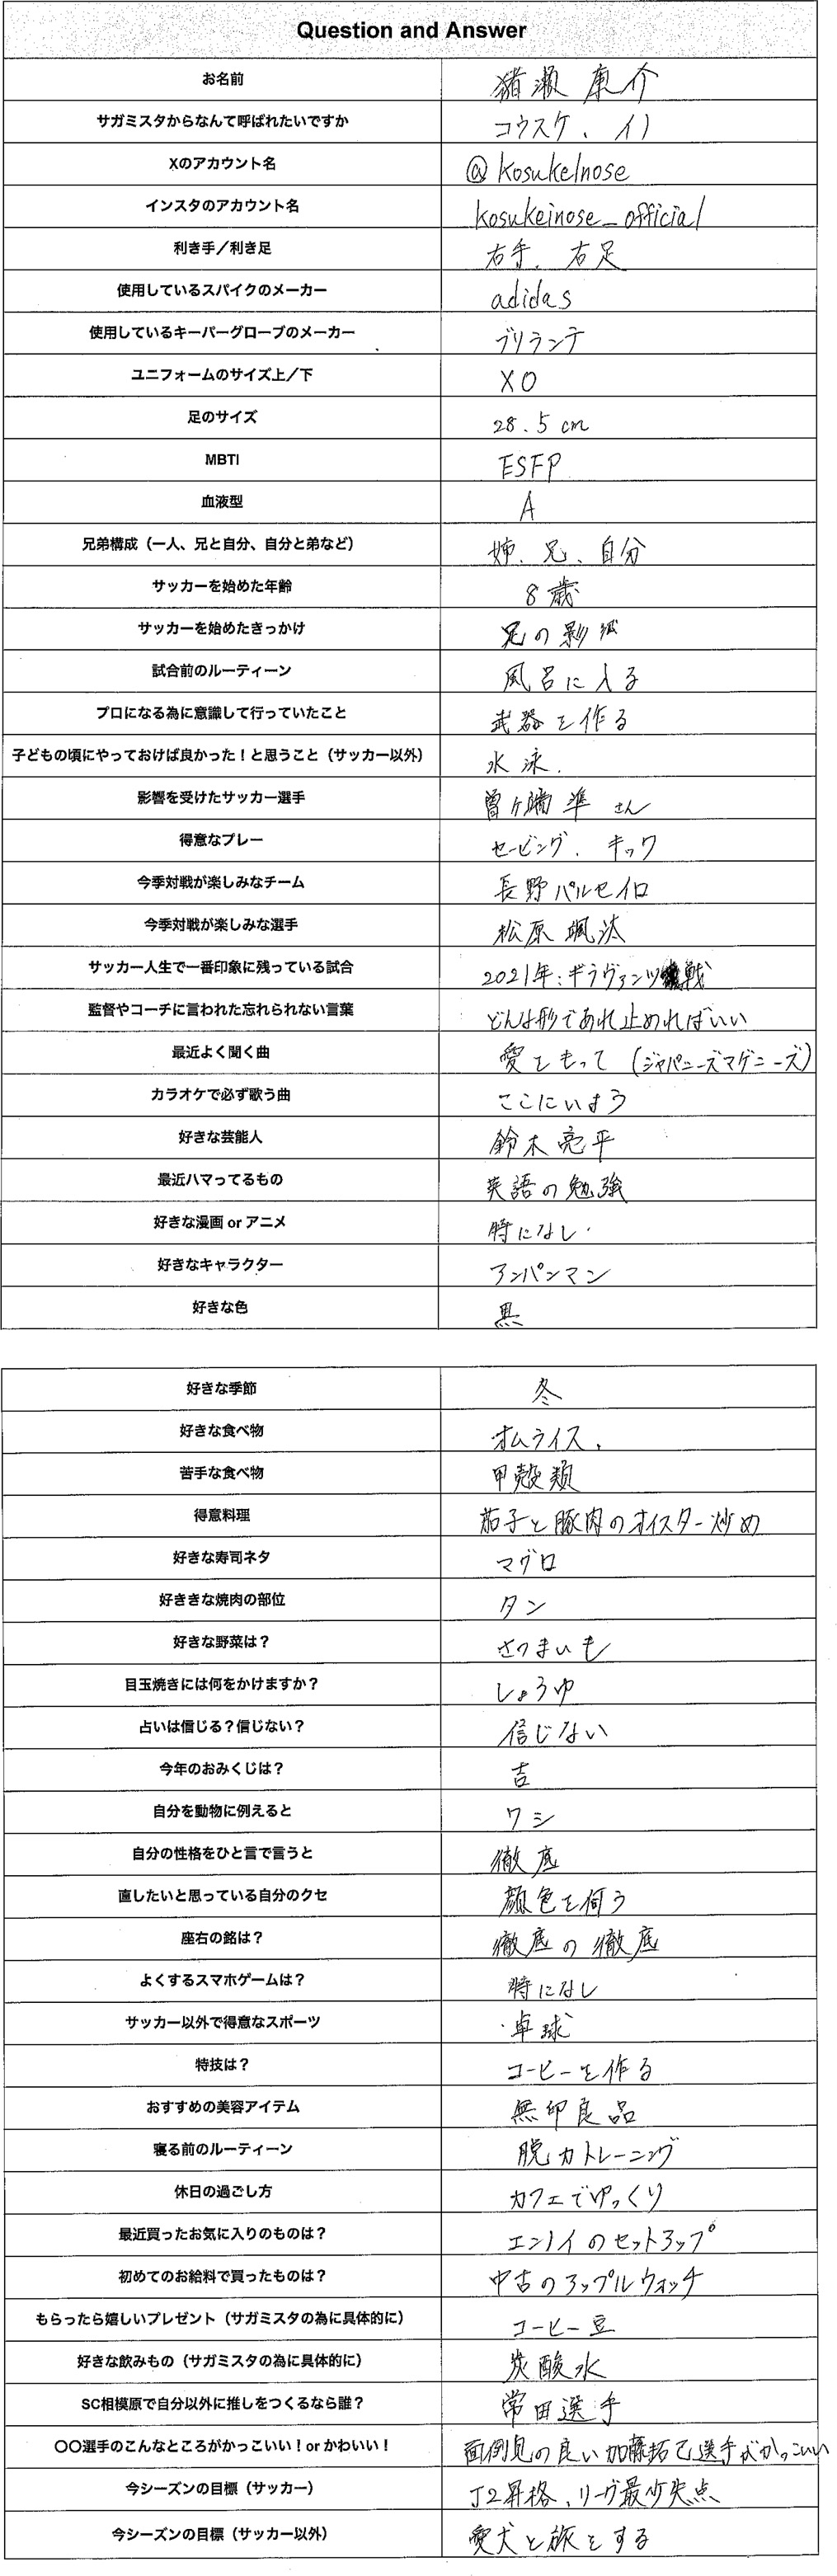 Question and Answer
お名前 猪瀬康介
サガミスタからなんて呼ばれたいですか コウスケ、イノ
Xのアカウント名 @KosukeInose
インスタのアカウント名 kosukeinose_official
利き手／利き足 右手、右足
使用しているスパイクのメーカー adidas
使用しているキーパーグローブのメーカー ブリランテ
ユニフォームのサイズ上／下 XO
足のサイズ 28.5cm
MBTI ESFP
血液型 A
兄弟構成（一人、兄と自分、自分と弟など） 姉、兄、自分
サッカーを始めた年齢 8歳
サッカーを始めたきっかけ 兄の影響
試合前のルーティーン 風呂に入る
プロになる為に意識して行っていたこと 武器を作る
子どもの頃にやっておけば良かった！と思うこと（サッカー以外） 水泳.
影響を受けたサッカー選手 曽ヶ端準さん
得意なプレー セービング、キック
今季対戦が楽しみなチーム 長野パルセイロ
今季対戦が楽しみな選手 松原颯汰
サッカー人生で一番印象に残っている試合 2021年:ギラヴァンツ戦
監督やコーチに言われた忘れられない言葉 どんな形であれ止めればいい
最近よく聞く曲 愛をもって（ジャパニーズマゲニーズ）
カラオケで必ず歌う曲 ここにいよう
好きな芸能人 鈴木亮平
最近ハマってるもの 英語の勉強
好きな漫画 or アニメ 特になし.
好きなキャラクター アンパンマン
好きな色 黒
好きな季節 冬
好きな食べ物 オムライス、
苦手な食べ物 甲殻類
得意料理 茄子と豚肉のオイスター炒め
好きな寿司ネタ マグロ
好ききな焼肉の部位 タン
好きな野菜は？ さつまいも
目玉焼きには何をかけますか？ しょうゆ
占いは信じる？信じない？ 信じない
今年のおみくじは？ 吉
自分を動物に例えると ワシ
自分の性格をひと言で言うと 徹底
直したいと思っている自分のクセ 顔色を伺う
座右の銘は？ 徹底の徹底
よくするスマホゲームは？ 特になし
サッカー以外で得意なスポーツ 卓球
特技は？ コーヒーを作る
おすすめの美容アイテム 無印良品
寝る前のルーティーン 脱力トレーニング
休日の過ごし方 カフェでゆっくり
最近買ったお気に入りのものは？ エンノイのセットアップ
初めてのお給料で買ったものは？ 中古のアップルウォッチ
もらったら嬉しいプレゼント（サガミスタの為に具体的に） コーヒー豆
好きな飲みもの（サガミスタの為に具体的に） 炭酸水
SC相模原で自分以外に推しをつくるなら誰？ 常田選手
〇〇選手のこんなところがかっこいい！or かわいい！ 面倒見の良い加藤拓己選手がかっこいい
今シーズンの目標（サッカー） J2昇格、リーグ最少失点
今シーズンの目標（サッカー以外） 愛犬と旅をする